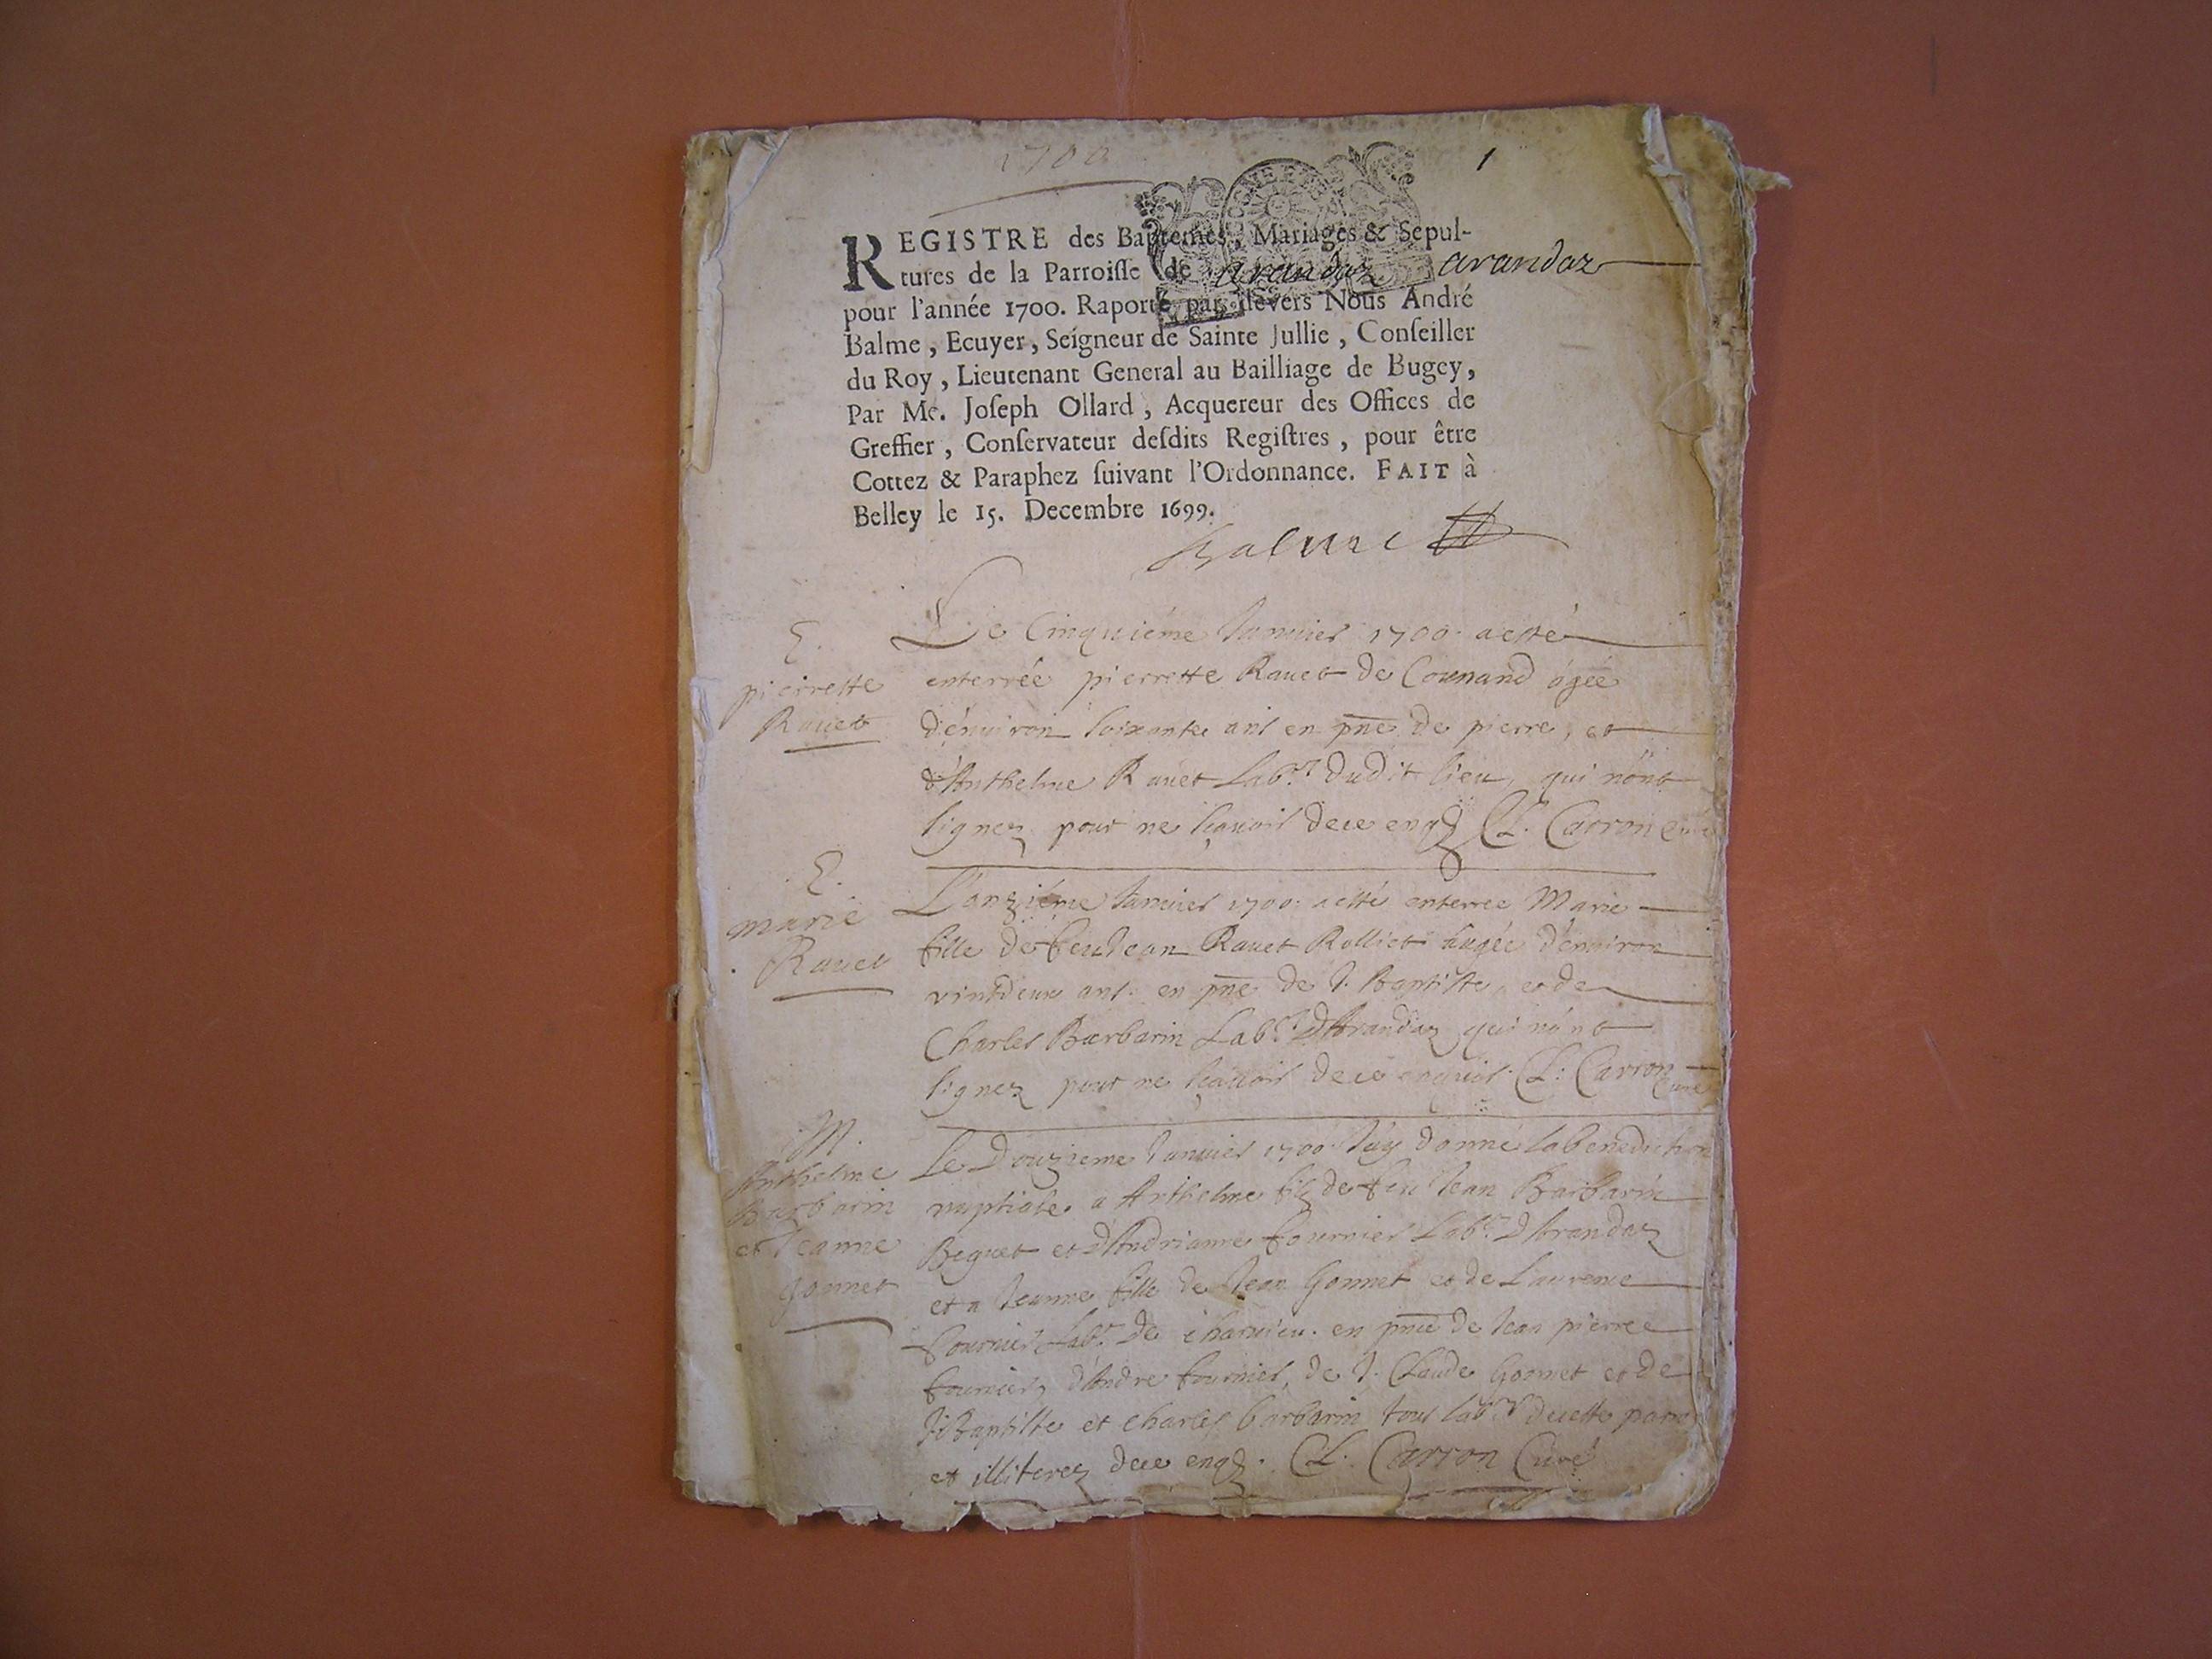 1700
1
REGISTRE des Baptemes, Mariages & Sepul-
tures de la Parroisse de arandaz arandaz
pour l'année 1700. Raporté par devers Nous André
Balme, Ecuyer, Seigneur de Sainte Jullie, Conseiller
du Roy, Lieutenant General au Bailliage de Bugey,
Par Me. Joseph Ollard, Acquereur des Offices de
Greffier, Conservateur desdits Registres, pour être
Cottez & Paraphez suivant l'Ordonnance. FAIT à
Belley le 15. Decembre 1699.
Balme
E.
pierrette
Ravet
Le Cinquiéme Janvier 1700. a esté
enterrée pierrette Ravet de Counand ágée
d'environ soixante ans en pnce de pierre, et
d'Anthelme Ravet Labr. dudit lieu, qui n'ont
signez pour ne sçavoir de ce enqs CL. Carron curé
E.
marie
Ravet
L'onzième Janvier 1700. a esté enterree Marie
fille de feu Jean Ravet Rolliet aagée d'environ
vintdeux ans. en pnce de J. Baptiste, et de
Charles Barbarin Labrs. d'Arandaz qui n'ont
signez pour ne sçavoir de ce enquis. CL. Carron
Curé
M.
Anthelme
Barbarin
et Jeanne
gonnet
Le Douzieme Janvier 1700. J'ay donné la benediction
nuptiale a Anthelme filz de feu Jean Barbarin
Beguet et d'Andrianne fournier Labr. d'Arandaz
et a Jeanne fille de Jean Gonnet et de Laurence
fournier Labr. de charvieu. en pnce de Jean pierre
fournier, d'Andre fournier, de J. Claude Gonnet et de
J. Baptiste et charles barbarin tous labrs de cette parre
et illiterez de ce enqs. CL. Carron Curé